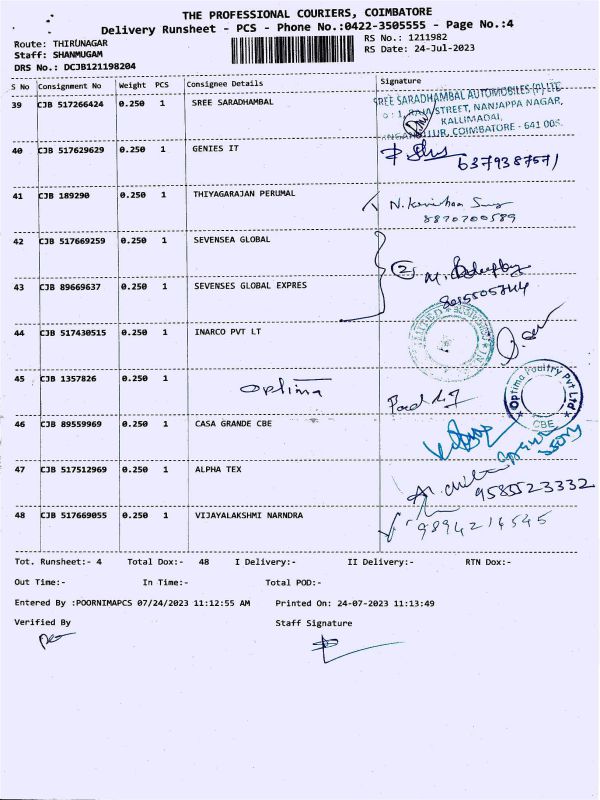 THE PROFESSIONAL COURIERS, COIMBATORE
Delivery Runsheet - PCS - Phone No.:0422-3505555 - Page No.:4
Route: THIRUNAGAR
RS No.: 1211982
Staff: SHANMUGAM
RS Date: 24-Jul-2023
DRS No.: DCJB121198204
S No Consignment No Weight PCS Consignee Details Signature
39 CJB 517266424 0.250 1 SREE SARADHAMBAL
SREE SARADHAMBAL AUTOMOBILES (P) LTD
STREET, NANJAPPA NAGAR,
KALLIMADAI,
COIMBATORE - 641 005.
40 CJB 517629629 0.250 1 GENIES IT
6379387571
41 CJB 189290 0.250 1 THIYAGARAJAN PERUMAL
8870700589
42 CJB 517669259 0.250 1 SEVENSEA GLOBAL
43 CJB 89669637 0.250 1 SEVENSES GLOBAL EXPRES
2
44 CJB 517430515 0.250 1 INARCO PVT LT
45 CJB 1357826 0.250 1 Optima
Optima Poultry Pvt Ltd
CBE
46 CJB 89559969 0.250 1 CASA GRANDE CBE
47 CJB 517512969 0.250 1 ALPHA TEX
9585523332
48 CJB 517669055 0.250 1 VIJAYALAKSHMI NARNDRA
9894216545
Tot. Runsheet:- 4 Total Dox:- 48 I Delivery:- II Delivery:- RTN Dox:-
Out Time:- In Time:- Total POD:-
Entered By :POORNIMAPCS 07/24/2023 11:12:55 AM Printed On: 24-07-2023 11:13:49
Verified By Staff Signature